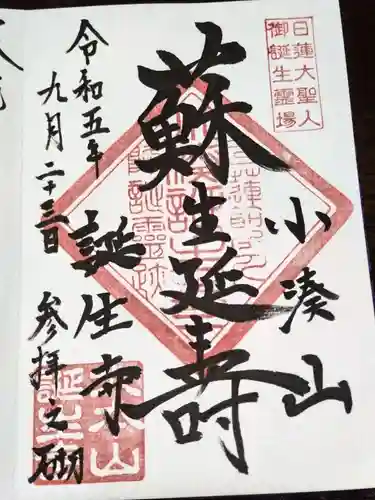 日蓮大聖人
御誕生霊場
小湊山
蘇生延寿
誕生寺
令和五年
九月二十三日
参拝之砌